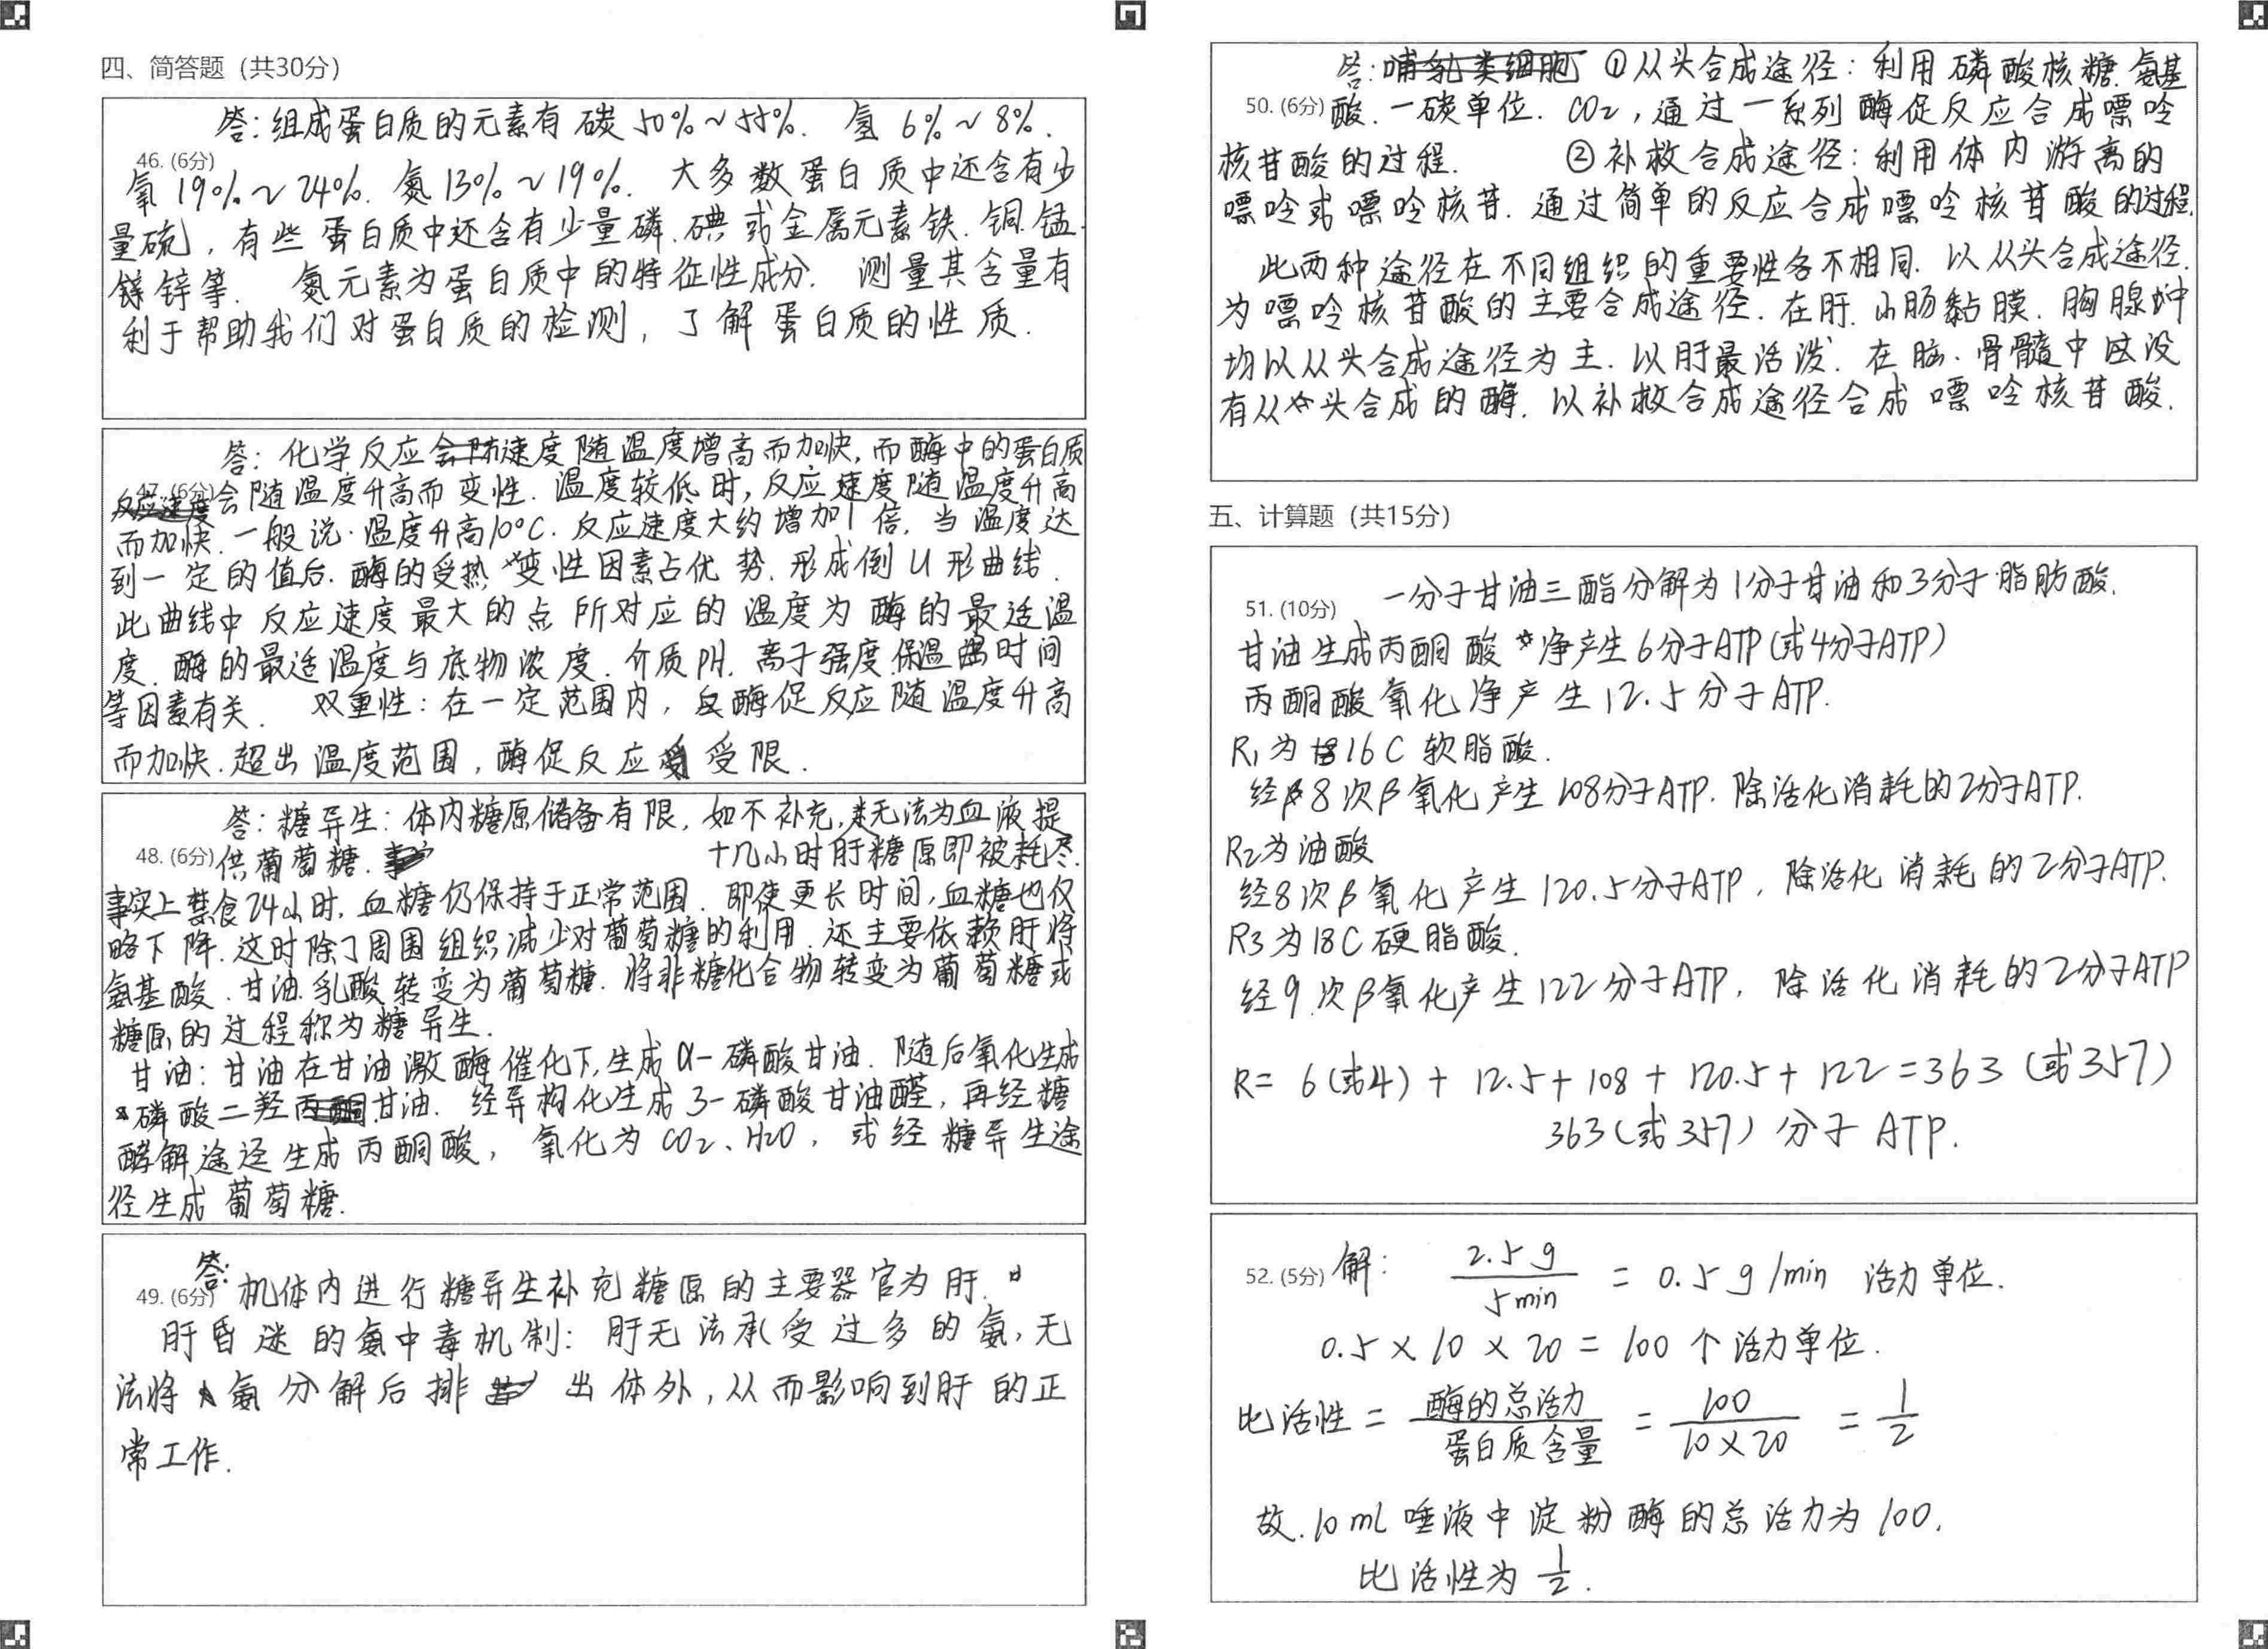 四、简答题（共30分）
答：组成蛋白质的元素有碳50%～55%. 氢6%～8%.
46. (6分)
氧19%～24%. 氮13%～19%. 大多数蛋白质中还含有少
量硫，有些蛋白质中还含有少量磷.碘或金属元素铁.铜.锰.
锌等. 氮元素为蛋白质中的特征性成分. 测量其含量有
利于帮助我们对蛋白质的检测，了解蛋白质的性质.
答：化学反应速度随温度增高而加快，而酶中的蛋白质
47. (6分)
会随温度升高而变性. 温度较低时，反应速度随温度升高
而加快. 一般说.温度升高10°C. 反应速度大约增加1倍. 当温度达
到一定的值后.酶的受热变性因素占优势.形成倒U形曲线.
此曲线中反应速度最大的点所对应的温度为酶的最适温
度. 酶的最适温度与底物浓度.介质PH.离子强度.保温时间
等因素有关. 双重性：在一定范围内，酶促反应随温度升高
而加快.超出温度范围，酶促反应受限.
答：糖异生：体内糖原储备有限，如不补充，无法为血液提
48. (6分)
供葡萄糖. 十几小时肝糖原即被耗尽.
事实上禁食24小时，血糖仍保持于正常范围. 即使更长时间，血糖也仅
略下降.这时除了周围组织减少对葡萄糖的利用.还主要依赖肝将
氨基酸.甘油.乳酸转变为葡萄糖.将非糖化合物转变为葡萄糖或
糖原的过程称为糖异生.
甘油：甘油在甘油激酶催化下，生成α-磷酸甘油. 随后氧化生成
磷酸二羟甘油. 经异构化生成3-磷酸甘油醛，再经糖
酵解途径生成丙酮酸，氧化为CO2、H2O，或经糖异生途
径生成葡萄糖.
答：
49. (6分)
机体内进行糖异生补充糖原的主要器官为肝.
肝昏迷的氨中毒机制：肝无法承受过多的氨，无
法将氨分解后排出体外，从而影响到肝的正
常工作.
答：①从头合成途径：利用磷酸核糖.氨基
50. (6分)
酸.一碳单位. CO2，通过一系列酶促反应合成嘌呤
核苷酸的过程. ②补救合成途径：利用体内游离的
嘌呤或嘌呤核苷.通过简单的反应合成嘌呤核苷酸的过程.
此两种途径在不同组织的重要性各不相同. 以从头合成途径.
为嘌呤核苷酸的主要合成途径.在肝.小肠黏膜.胸腺中
均以从头合成途径为主.以肝最活泼. 在脑.骨髓中因没
有从头合成的酶. 以补救合成途径合成嘌呤核苷酸.
五、计算题（共15分）
51. (10分)
一分子甘油三酯分解为1分子甘油和3分子脂肪酸.
甘油生成丙酮酸净产生6分子ATP(或4分子ATP)
丙酮酸氧化净产生12.5分子ATP.
R1为16C软脂酸.
经8次β氧化产生108分子ATP. 除活化消耗的2分子ATP.
R2为油酸
经8次β氧化产生120.5分子ATP，除活化消耗的2分子ATP.
R3为18C硬脂酸.
经9次β氧化产生122分子ATP，除活化消耗的2分子ATP
R= 6(或4) + 12.5 + 108 + 120.5 + 122 = 363 (或357)
363(或357) 分子ATP.
52. (5分)
解： 2.5g/5min = 0.5g/min 活力单位.
0.5 × 10 × 20 = 100个活力单位.
比活性 = 酶的总活力/蛋白质含量 = 100/10×20 = 1/2
故.10ml唾液中淀粉酶的总活力为100.
比活性为1/2.